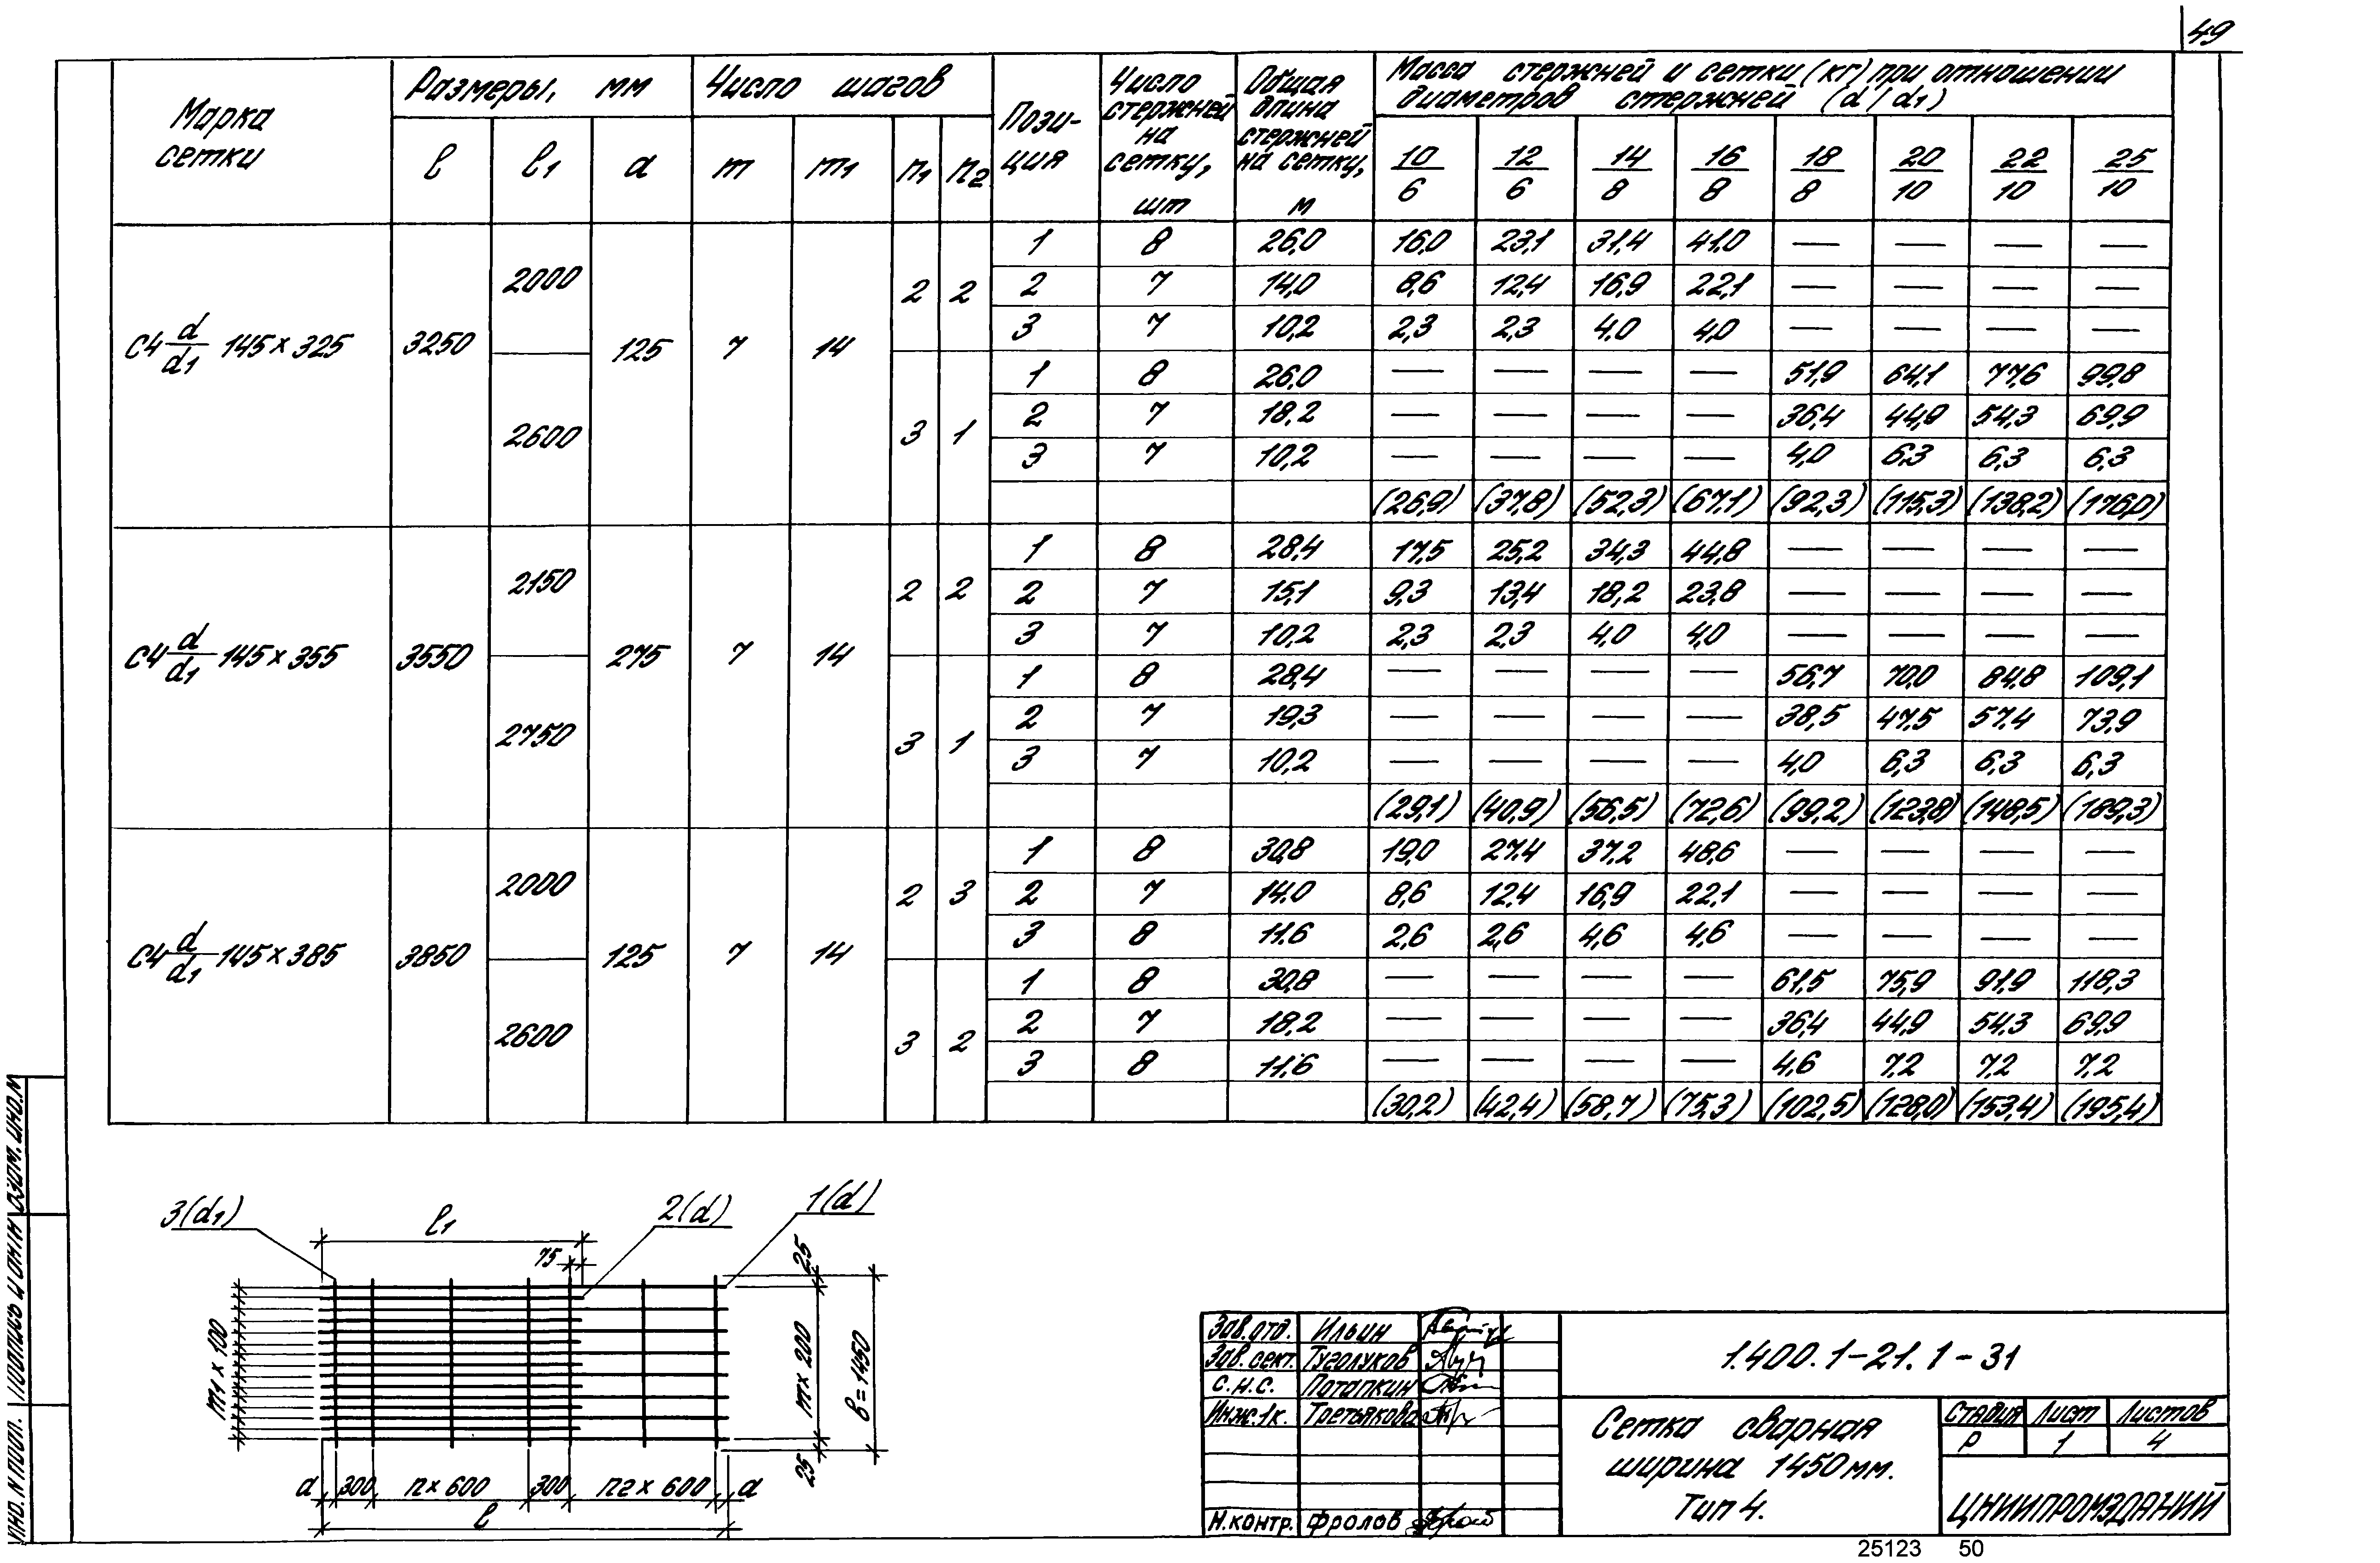 49
Марка сетки | Размеры, мм | Число шагов | Пози-ция | Число стержней на сетку, шт | Общая длина стержней на сетку, м | Масса стержней и сетки (кг) при отношении диаметров стержней (d/d1)
l | l1 | a | m | m1 | n1 | n2 | 10/6 | 12/6 | 14/8 | 16/8 | 18/8 | 20/10 | 22/10 | 25/10
С4 d/d1 145×325 | 3250 | 125 | 7 | 14
2000 | 2 | 2
1 | 8 | 26,0 | 16,0 | 23,1 | 31,4 | 41,0 | — | — | — | —
2 | 7 | 14,0 | 8,6 | 12,4 | 16,9 | 22,1 | — | — | — | —
3 | 7 | 10,2 | 2,3 | 2,3 | 4,0 | 4,0 | — | — | — | —
2600 | 3 | 1
1 | 8 | 26,0 | — | — | — | — | 51,9 | 64,1 | 77,6 | 99,8
2 | 7 | 18,2 | — | — | — | — | 36,4 | 44,9 | 54,3 | 69,9
3 | 7 | 10,2 | — | — | — | — | 4,0 | 6,3 | 6,3 | 6,3
(26,9) | (37,8) | (52,3) | (67,1) | (92,3) | (115,3) | (138,2) | (176,0)
С4 d/d1 145×355 | 3550 | 275 | 7 | 14
2150 | 2 | 2
1 | 8 | 28,4 | 17,5 | 25,2 | 34,3 | 44,8 | — | — | — | —
2 | 7 | 15,1 | 9,3 | 13,4 | 18,2 | 23,8 | — | — | — | —
3 | 7 | 10,2 | 2,3 | 2,3 | 4,0 | 4,0 | — | — | — | —
2750 | 3 | 1
1 | 8 | 28,4 | — | — | — | — | 56,7 | 70,0 | 84,8 | 109,1
2 | 7 | 19,3 | — | — | — | — | 38,5 | 47,5 | 57,4 | 73,9
3 | 7 | 10,2 | — | — | — | — | 4,0 | 6,3 | 6,3 | 6,3
(29,1) | (40,9) | (56,5) | (72,6) | (99,2) | (123,8) | (148,5) | (189,3)
С4 d/d1 145×385 | 3850 | 125 | 7 | 14
2000 | 2 | 3
1 | 8 | 30,8 | 19,0 | 27,4 | 37,2 | 48,6 | — | — | — | —
2 | 7 | 14.0 | 8,6 | 12,4 | 16,9 | 22,1 | — | — | — | —
3 | 8 | 11.6 | 2,6 | 2,6 | 4,6 | 4,6 | — | — | — | —
2600 | 3 | 2
1 | 8 | 30,8 | — | — | — | — | 61,5 | 75,9 | 91,9 | 118,3
2 | 7 | 18,2 | — | — | — | — | 36,4 | 44,9 | 54,3 | 69,9
3 | 8 | 11.6 | — | — | — | — | 4,6 | 7,2 | 7,2 | 7,2
(30,2) | (42,4) | (58,7) | (75,3) | (102,5) | (128,0) | (153,4) | (195,4)
3(d1)
l1
2(d)
1(d)
75
25
m1 × 100
m × 200
в = 1450
25
a
300
n × 600
300
n2 × 600
a
l
Зав.отд. Ильин
Зав.сект. Туголуков
С.Н.С. Потапкин
Инж.1к. Третьякова
Н.контр. Фролов
1.400.1-21.1-31
Сетка сварная
ширина 1450мм.
Тип 4.
Стадия Лист Листов
Р 1 4
ЦНИИПРОМЗДАНИЙ
Инв.N подл.
Подпись и дата
Взам. инв.N
25123 50